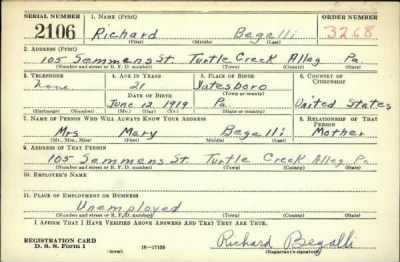 SERIAL NUMBER 1. NAME (Print) ORDER NUMBER
2106 Richard Begalli 3268
(First) (Middle) (Last)
2. ADDRESS (Print)
105 Semmens St. Turtle Creek Alleg Pa.
(Number and street or R. F. D. number) (Town) (County) (State)
3. TELEPHONE 4. AGE IN YEARS 5. PLACE OF BIRTH 6. COUNTRY OF CITIZENSHIP
None 21 Yatesboro
DATE OF BIRTH (Town or county)
June 12 1919 Pa. United States
(Exchange) (Number) (Mo.) (Day) (Yr.) (State or country)
7. NAME OF PERSON WHO WILL ALWAYS KNOW YOUR ADDRESS 8. RELATIONSHIP OF THAT PERSON
Mrs Mary Begalli Mother
(Mr., Mrs., Miss) (First) (Middle) (Last)
9. ADDRESS OF THAT PERSON
105 Semmens St. Turtle Creek Alleg Pa
(Number and street or R. F. D. number) (Town) (County) (State)
10. EMPLOYER'S NAME
11. PLACE OF EMPLOYMENT OR BUSINESS
Unemployed
(Number and street or R. F. D. number) (Town) (County) (State)
I AFFIRM THAT I HAVE VERIFIED ABOVE ANSWERS AND THAT THEY ARE TRUE.
REGISTRATION CARD
D. S. S. Form 1 (over) 16-17105 Richard Begalli
(Registrant's signature)